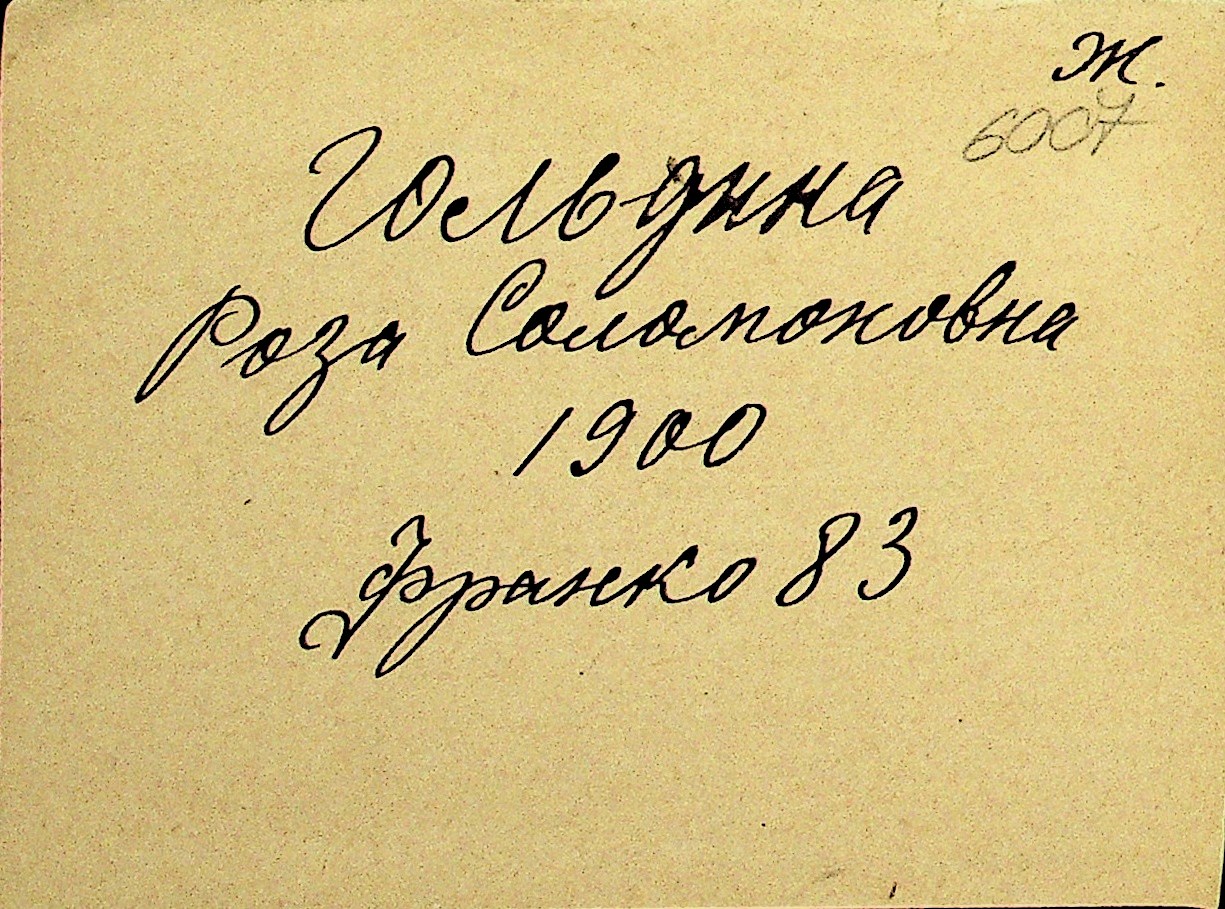 Ж.
6007
Гольдина
Роза Соломоновна
1900
Франко 83